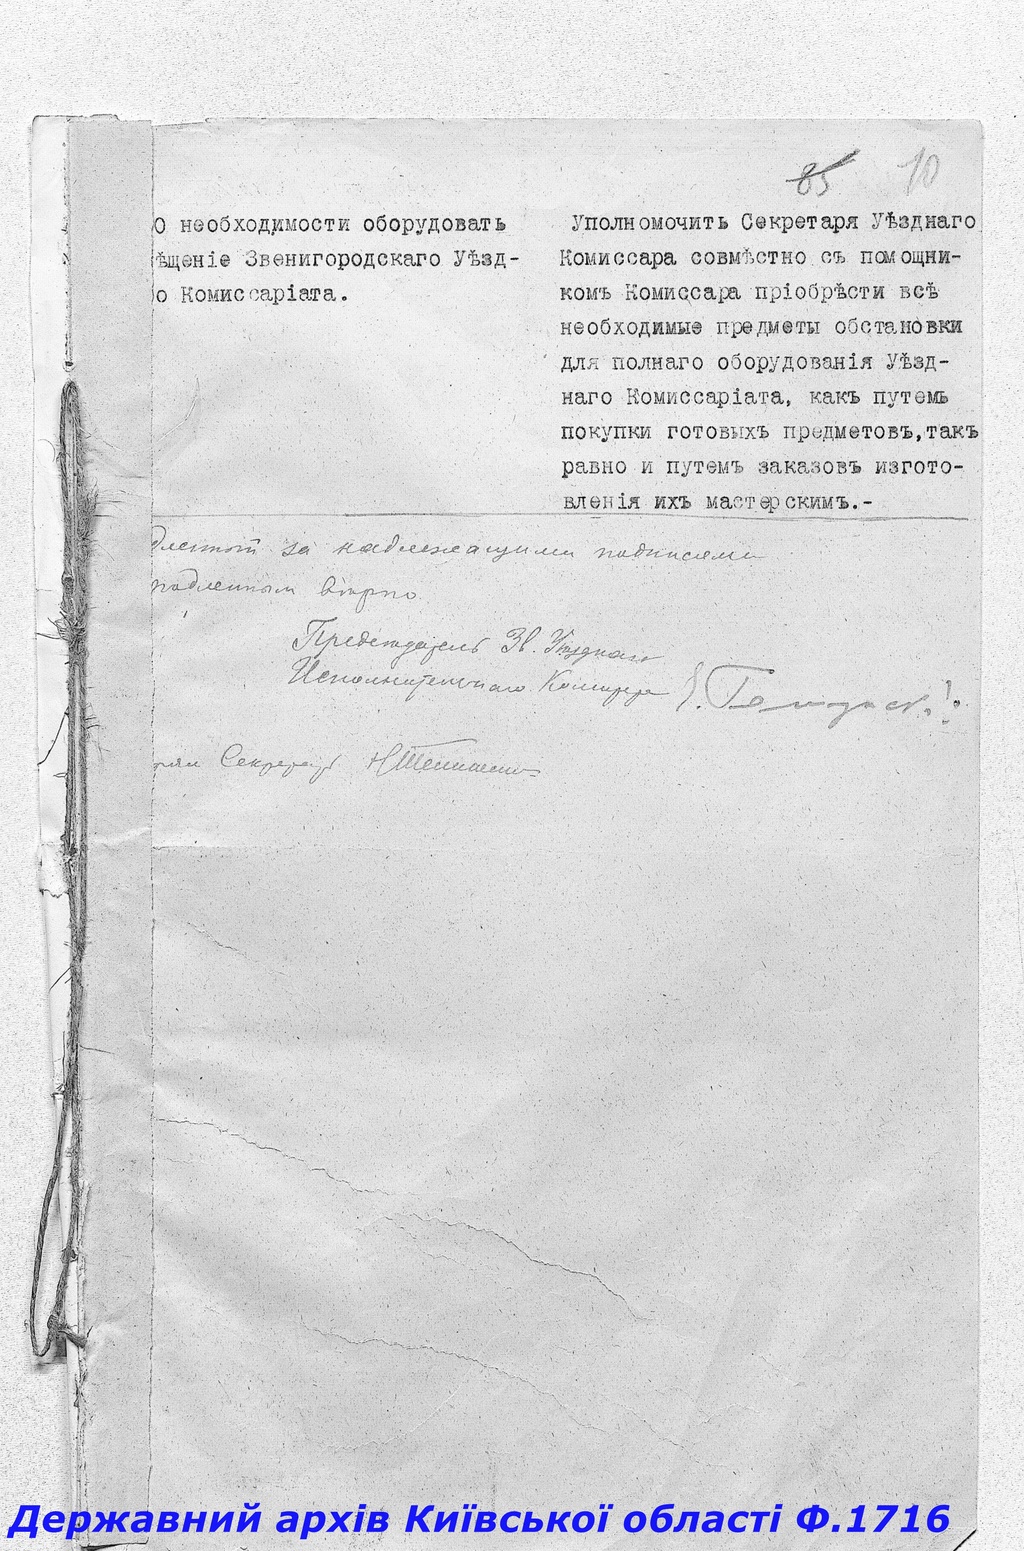 85 10
О необходимости оборудовать
ѣщеніе Звенигородскаго Уѣзд-
о Комиссаріата.
Уполномочить Секретаря Уѣзднаго
Комиссара совмѣстно съ помощни-
комъ Комиссара пріобрѣсти всѣ
необходимые предметы обстановки
для полнаго оборудованія Уѣзд-
наго Комиссаріата, какъ путемъ
покупки готовыхъ предметовъ,такъ
равно и путемъ заказовъ изгото-
вленія ихъ мастерскимъ.-
за надлежащими подписями
вѣрно
Председатель Зв. Уѣзднаго
Исполнительнаго Комитета
Секретарь
Державний архів Київської області Ф.1716